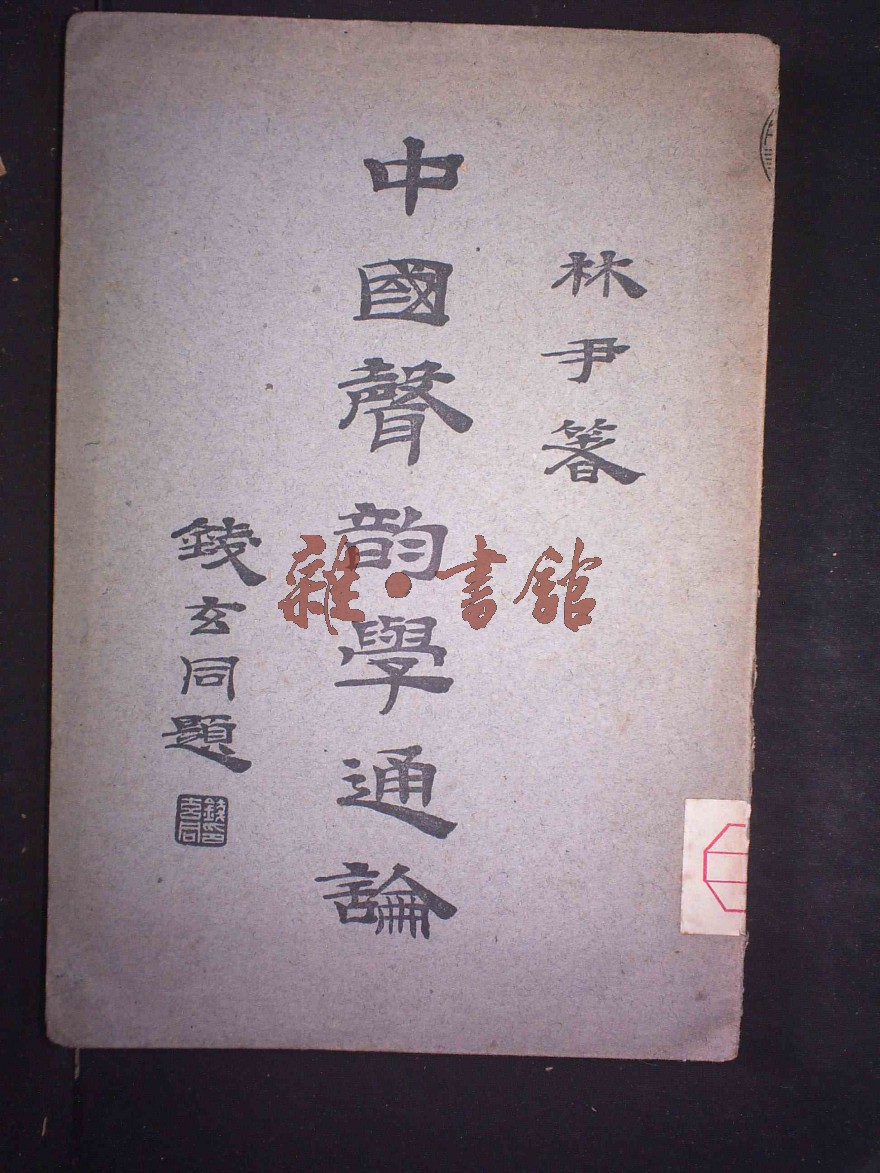 林尹箸
中國聲韵學通論
錢玄同題
錢玄同印
雜·書館